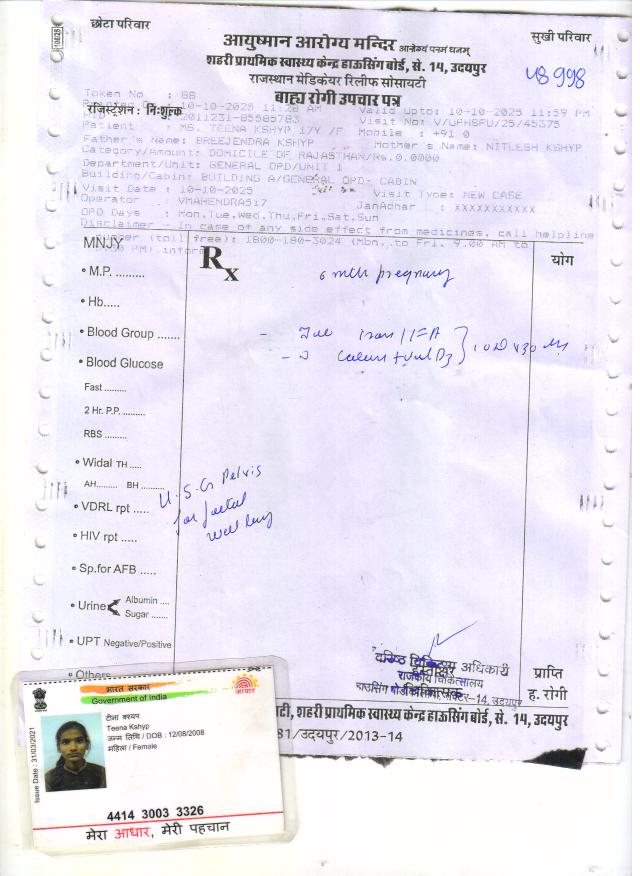 छोटा परिवार
सुखी परिवार
आयुष्मान आरोग्य मन्दिर आरोग्यं परमं धनम्
शहरी प्राथमिक स्वास्थ्य केन्द्र हाऊसिंग बोर्ड, से. 14, उदयपुर
राजस्थान मेडिकेयर रिलीफ सोसायटी
48998
बाह्य रोगी उपचार पत्र
Token No : 88
10-10-2025 11:28 AM Valid Upto: 10-10-2025 11:59 PM
रजिस्ट्रेशन : निःशुल्क
Visit No: V/UPHSFU/25/45375
Patient : MS. TEENA KSHYP 17Y /F Mobile : +91 0
Father's Name: BREEJENDRA KSHYP Mother's Name: NITLESH KSHYP
Category/Amount: DOMICILE OF RAJASTHAN/Rs.0.0000
Department/Unit: GENERAL OPD/UNIT 1
Building/Cabin: BUILDING A/GENERAL OPD- CABIN
Visit Date : 10-10-2025 Visit Type: NEW CASE
Operator : VMAHENDRA517 JanAdhar : XXXXXXXXXXX
OPD Days : Mon,Tue,Wed,Thu,Fri,Sat,Sun
Disclaimer - In case of any side effect from medicines, call helpline
number (toll free): 1800-180-3024 (Mon. to Fri. 9.00 AM to
PM).inform
MNJY
Rx
योग
• M.P. .........
6 mth pregnancy
• Hb.....
• Blood Group .......
- Iron / IFA
• Blood Glucose
Vit D3
Fast .........
2 Hr. P.P. .........
RBS .........
• Widal TH .....
AH......... BH .........
U.S.G Pelvis
for foetal
well
• VDRL rpt .....
• HIV rpt .....
• Sp.for AFB .....
• Urine Albumin ....
Sugar .......
• UPT Negative/Positive
• Others
वरिष्ठ चिकित्सा अधिकारी
हस्ताक्षर
राजकीय चिकित्सालय
प्राप्ति
ह. रोगी
शहरी प्राथमिक स्वास्थ्य केन्द्र हाऊसिंग बोर्ड, से. 14, उदयपुर
81/उदयपुर/2013-14
भारत सरकार
Government of India
आधार
टीना कश्यप
Teena Kshyp
जन्म तिथि / DOB : 12/08/2008
महिला / Female
Issue Date : 31/03/2021
4414 3003 3326
मेरा आधार, मेरी पहचान